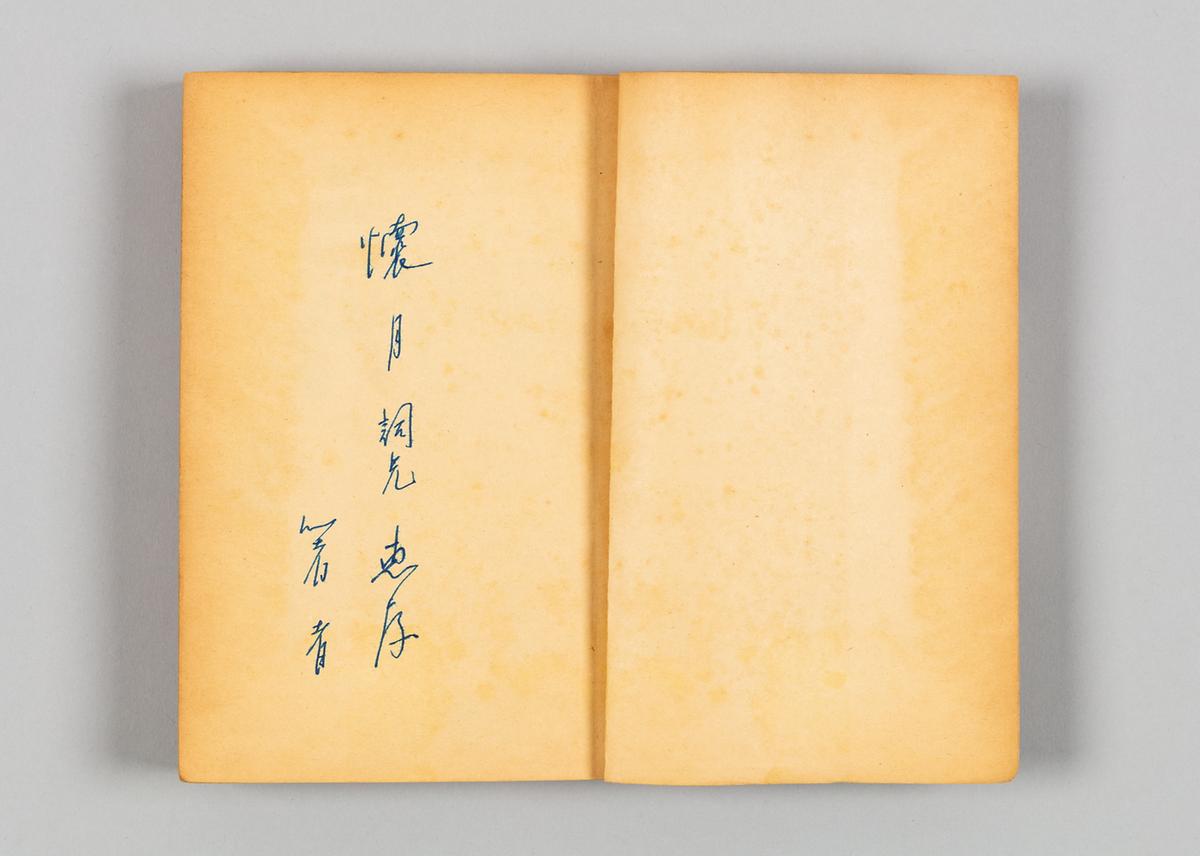 懷月詞兄惠存
箸者